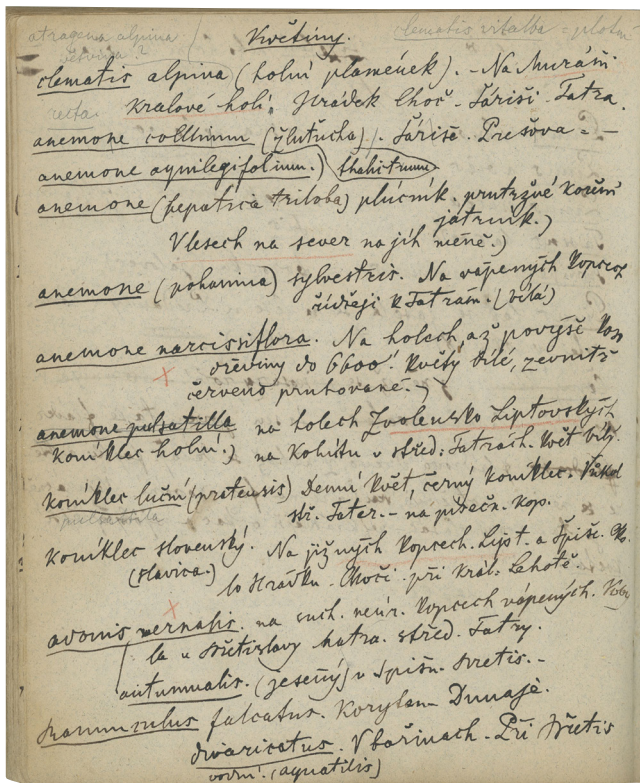 atragena alpina
Květiny.
clematis vitalba = plotní
clematis alpina (holní plamének). - Na Muráni
recta. Kralové holi. Hrádek Choč - Šáriši Tatra.
anemone (žlutucha). Šáriše. Prešova = -
anemone aquilegifolium.) thalictrum
anemone (hepatica triloba) plúcnik.
játrnik.)
Vlesech na sever na jih méně.)
anemone (pohanina) sylvestris. Na vápených Kopcoch
řidžeji k Tatrám. (bílá)
anemone narcissiflora. Na holech, až povýše
dřeviny do 6600'. Květy bílé, zevnitř
červeno pruhované.-)
anemone pulsatilla na holech Zvolensko Liptovských
koniklec holní.) na v střed: Tatrách. Květ bílý.
koniklec luční (pratensis) Denní květ, černý koniklec.
pulsatilla stř. Tater. - na písečn. kop.
koniklec slovenský. Na jižných Kopcech. Lipt. a Spiš.
(slavica.) Hrádku. Choči. při Král: Lehotě.
adonis vernalis. na such. neúr. Kopcech vápených.
la u Břetislavy Matra. střed. Tatry.
autumnalis. (jesený) v Spišn.
Ranunculus falcatus. Dunaje.
divaricatus. V bařinach. Při
vodní. (aquatilis)